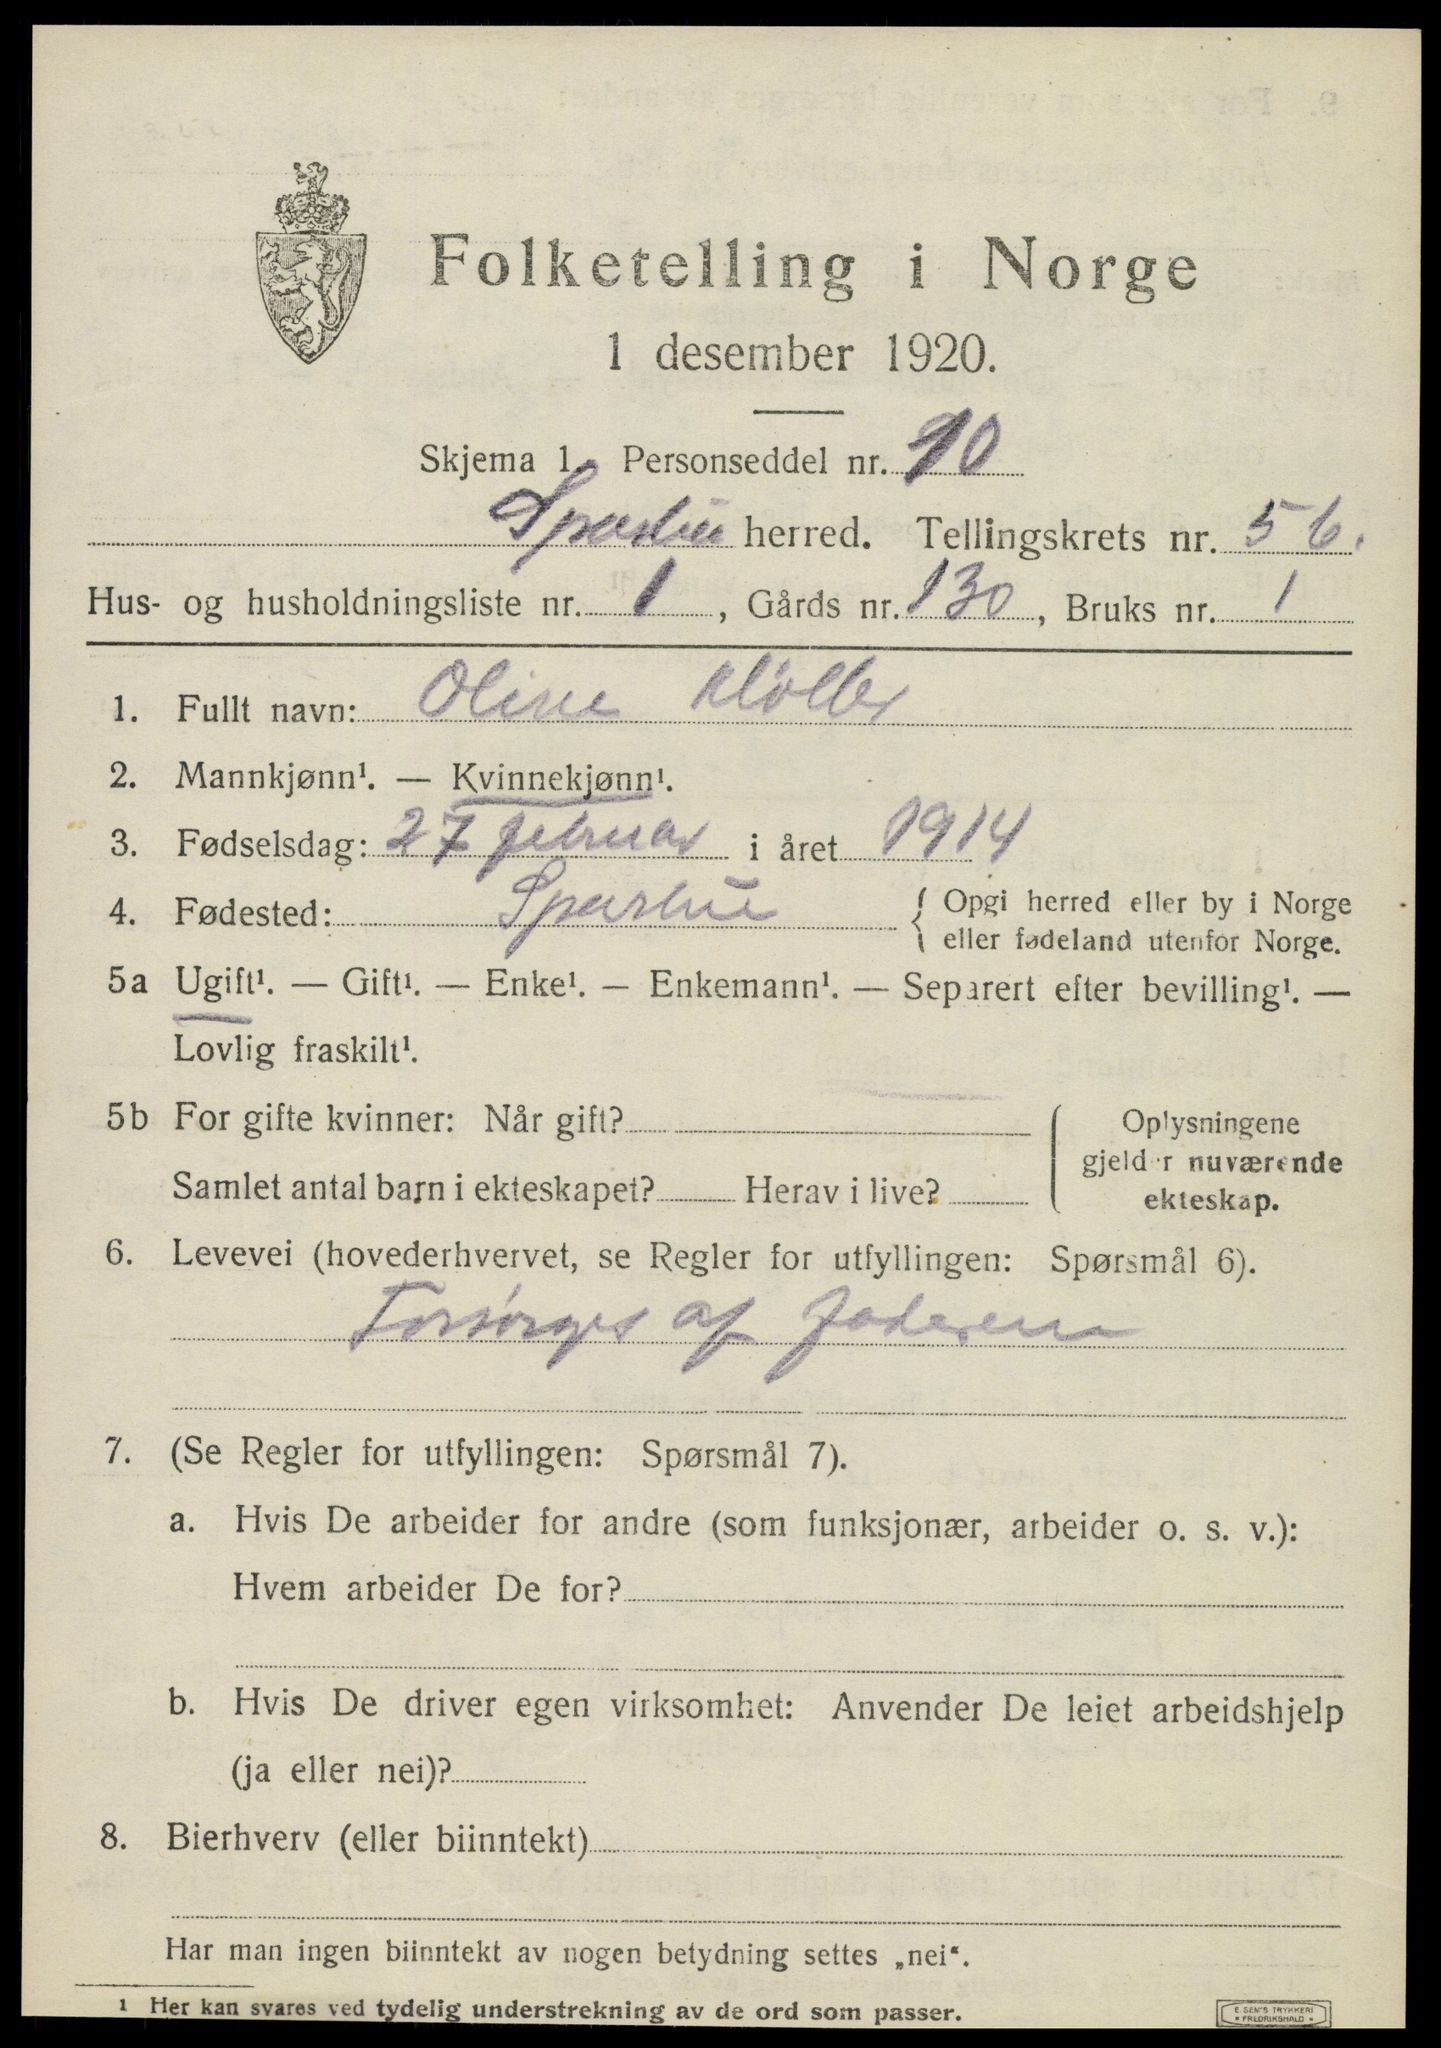 Folketelling i Norge
1 desember 1920.
Skjema 1. Personseddel nr. 10
Sparbu herred. Tellingskrets nr. 5 6.
Hus- og husholdningsliste nr. 1, Gårds nr. 130, Bruks nr. 1
1. Fullt navn: Oline Møller
2. Mannkjønn¹. — Kvinnekjønn¹.
3. Fødselsdag: 27 februar i året 1914
4. Fødested: Sparbu { Opgi herred eller by i Norge
eller fødeland utenfor Norge.
5a Ugift¹. — Gift¹. — Enke¹. — Enkemann¹. — Separert efter bevilling¹. —
Lovlig fraskilt¹.
5b For gifte kvinner: Når gift?
Samlet antal barn i ekteskapet? Herav i live?
Oplysningene
gjelder nuværende
ekteskap.
6. Levevei (hovederhvervet, se Regler for utfyllingen: Spørsmål 6).
Forsørges af Faderen
7. (Se Regler for utfyllingen: Spørsmål 7).
a. Hvis De arbeider for andre (som funksjonær, arbeider o. s. v.):
Hvem arbeider De for?
b. Hvis De driver egen virksomhet: Anvender De leiet arbeidshjelp
(ja eller nei)?
8. Bierhverv (eller biinntekt)
Har man ingen biinntekt av nogen betydning settes „nei“.
1 Her kan svares ved tydelig understrekning av de ord som passer.
E. SEM'S TRYKKERI
FREDRIKSHALD